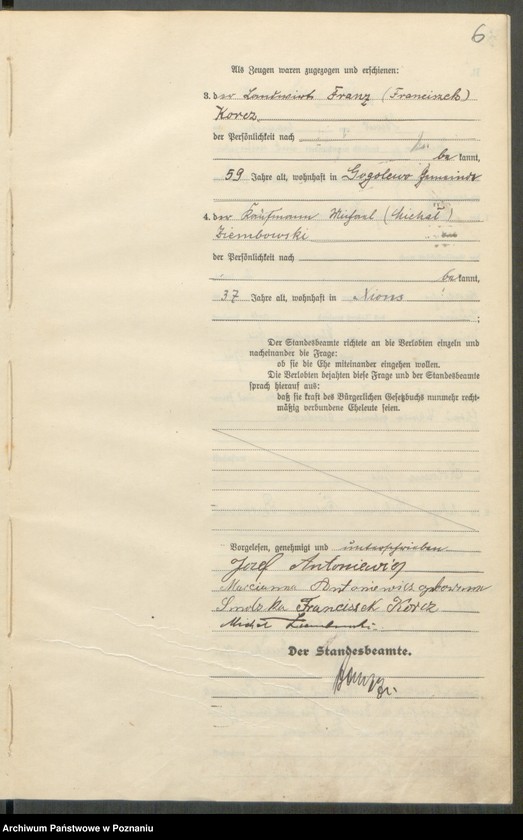 6
Als Zeugen waren zugezogen und erschienen:
3. der Landwirt Franz (Franciszek)
Korcz
der Persönlichkeit nach
bekannt,
59 Jahre alt, wohnhaft in Gogolewo Gemeinde
4. der Kaufmann Michael (Michał)
Ziembowski
der Persönlichkeit nach
bekannt,
37 Jahre alt, wohnhaft in Xions
;
Der Standesbeamte richtete an die Verlobten einzeln und
nacheinander die Frage:
ob sie die Ehe miteinander eingehen wollen.
Die Verlobten bejahten diese Frage und der Standesbeamte
sprach hierauf aus:
daß sie kraft des Bürgerlichen Gesetzbuchs nunmehr recht-
mäßig verbundene Eheleute seien.
Vorgelesen, genehmigt und unterschrieben.
Józef Antoniewicz
Marcianna Antoniewicz geborene
Franciszek Korcz
Michał
Der Standesbeamte.
Archiwum Państwowe w Poznaniu